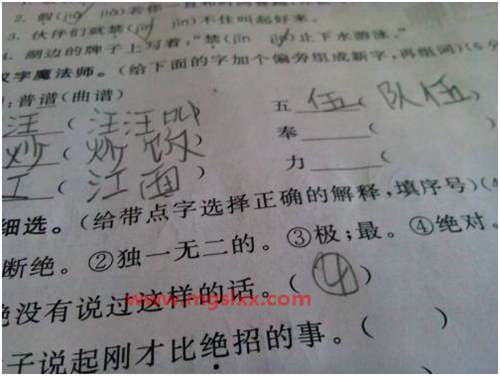 2. 假(jiǎ jià)若你一直和时间赛跑
3. 伙伴们就禁(jīn jìn)不住叫起好来。
4. 湖边的牌子上写着,“禁(jīn jìn)止下水游泳。”
汉字魔法师。(给下面的字加个偏旁组成新字,再组词)(6分
:普谱(曲谱)
五 伍 ( 队伍 )
汪 ( 汪汪叫
奉 (
炒 ( 炒饭
力 (
工 ( 江面 )
细选。(给带点字选择正确的解释,填序号)(4
断绝。②独一无二的。③极;最。④绝对。
绝没有说过这样的话。( ④ )
www.mgslxx.com
子说起刚才比绝招的事。( )